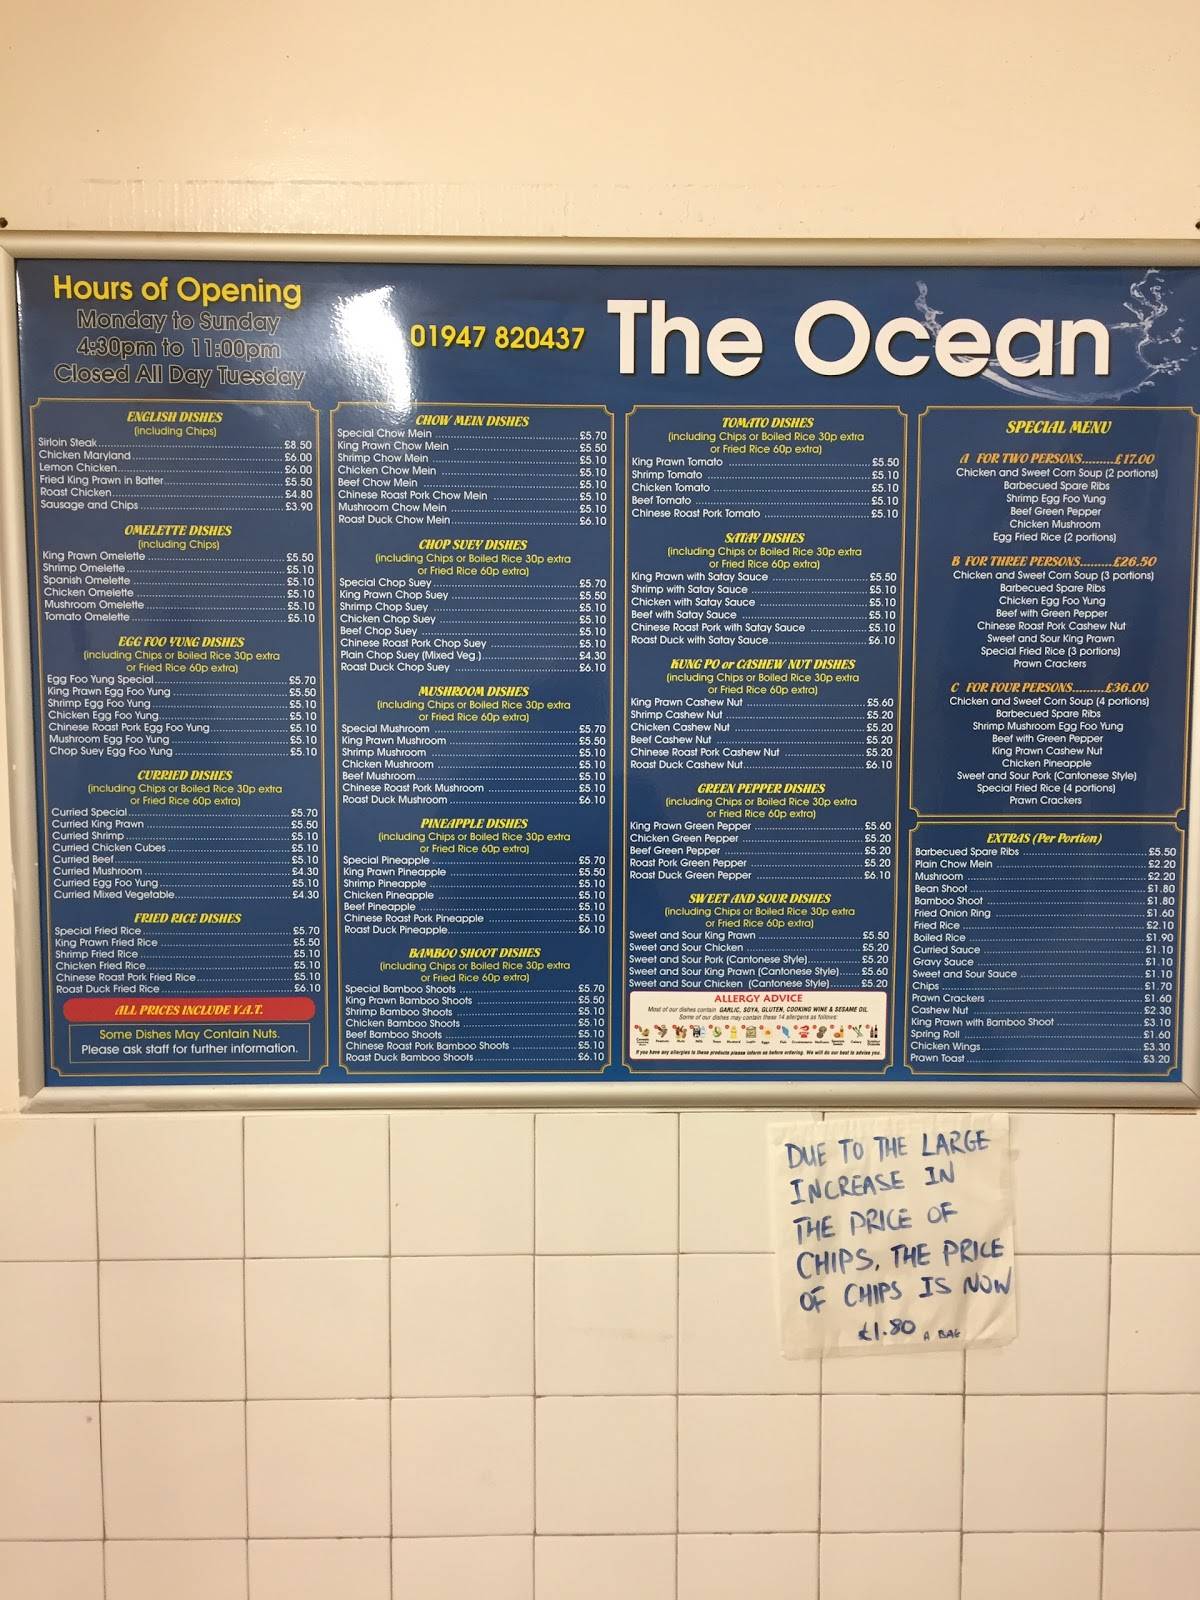 Hours of Opening
Monday to Sunday
4:30pm to 11:00pm
Closed All Day Tuesday
01947 820437
The Ocean
ENGLISH DISHES
(including Chips)
Sirloin Steak £8.50
Chicken Maryland £6.00
Lemon Chicken £6.00
Fried King Prawn in Batter £5.50
Roast Chicken £4.80
Sausage and Chips £3.90
OMELETTE DISHES
(including Chips)
King Prawn Omelette £5.50
Shrimp Omelette £5.10
Spanish Omelette £5.10
Chicken Omelette £5.10
Mushroom Omelette £5.10
Tomato Omelette £5.10
EGG FOO YUNG DISHES
(including Chips or Boiled Rice 30p extra
or Fried Rice 60p extra)
Egg Foo Yung Special £5.70
King Prawn Egg Foo Yung £5.50
Shrimp Egg Foo Yung £5.10
Chicken Egg Foo Yung £5.10
Chinese Roast Pork Egg Foo Yung £5.10
Mushroom Egg Foo Yung £5.10
Chop Suey Egg Foo Yung £5.10
CURRIED DISHES
(including Chips or Boiled Rice 30p extra
or Fried Rice 60p extra)
Curried Special £5.70
Curried King Prawn £5.50
Curried Shrimp £5.10
Curried Chicken Cubes £5.10
Curried Beef £5.10
Curried Mushroom £4.30
Curried Egg Foo Yung £5.10
Curried Mixed Vegetable £4.30
FRIED RICE DISHES
Special Fried Rice £5.70
King Prawn Fried Rice £5.50
Shrimp Fried Rice £5.10
Chicken Fried Rice £5.10
Chinese Roast Pork Fried Rice £5.10
Roast Duck Fried Rice £6.10
ALL PRICES INCLUDE V.A.T.
Some Dishes May Contain Nuts.
Please ask staff for further information.
CHOW MEIN DISHES
Special Chow Mein £5.70
King Prawn Chow Mein £5.50
Shrimp Chow Mein £5.10
Chicken Chow Mein £5.10
Beef Chow Mein £5.10
Chinese Roast Pork Chow Mein £5.10
Mushroom Chow Mein £5.10
Roast Duck Chow Mein £6.10
CHOP SUEY DISHES
(including Chips or Boiled Rice 30p extra
or Fried Rice 60p extra)
Special Chop Suey £5.70
King Prawn Chop Suey £5.50
Shrimp Chop Suey £5.10
Chicken Chop Suey £5.10
Beef Chop Suey £5.10
Chinese Roast Pork Chop Suey £5.10
Plain Chop Suey (Mixed Veg.) £4.30
Roast Duck Chop Suey £6.10
MUSHROOM DISHES
(including Chips or Boiled Rice 30p extra
or Fried Rice 60p extra)
Special Mushroom £5.70
King Prawn Mushroom £5.50
Shrimp Mushroom £5.10
Chicken Mushroom £5.10
Beef Mushroom £5.10
Chinese Roast Pork Mushroom £5.10
Roast Duck Mushroom £6.10
PINEAPPLE DISHES
(including Chips or Boiled Rice 30p extra
or Fried Rice 60p extra)
Special Pineapple £5.70
King Prawn Pineapple £5.50
Shrimp Pineapple £5.10
Chicken Pineapple £5.10
Beef Pineapple £5.10
Chinese Roast Pork Pineapple £5.10
Roast Duck Pineapple £6.10
BAMBOO SHOOT DISHES
(including Chips or Boiled Rice 30p extra
or Fried Rice 60p extra)
Special Bamboo Shoots £5.70
King Prawn Bamboo Shoots £5.50
Shrimp Bamboo Shoots £5.10
Chicken Bamboo Shoots £5.10
Beef Bamboo Shoots £5.10
Chinese Roast Pork Bamboo Shoots £5.10
Roast Duck Bamboo Shoots £6.10
TOMATO DISHES
(including Chips or Boiled Rice 30p extra
or Fried Rice 60p extra)
King Prawn Tomato £5.50
Shrimp Tomato £5.10
Chicken Tomato £5.10
Beef Tomato £5.10
Chinese Roast Pork Tomato £5.10
SATAY DISHES
(including Chips or Boiled Rice 30p extra
or Fried Rice 60p extra)
King Prawn with Satay Sauce £5.50
Shrimp with Satay Sauce £5.10
Chicken with Satay Sauce £5.10
Beef with Satay Sauce £5.10
Chinese Roast Pork with Satay Sauce £5.10
Roast Duck with Satay Sauce £6.10
KUNG PO or CASHEW NUT DISHES
(including Chips or Boiled Rice 30p extra
or Fried Rice 60p extra)
King Prawn Cashew Nut £5.60
Shrimp Cashew Nut £5.20
Chicken Cashew Nut £5.20
Beef Cashew Nut £5.20
Chinese Roast Pork Cashew Nut £5.20
Roast Duck Cashew Nut £6.10
GREEN PEPPER DISHES
(including Chips or Boiled Rice 30p extra
or Fried Rice 60p extra)
King Prawn Green Pepper £5.60
Chicken Green Pepper £5.20
Beef Green Pepper £5.20
Roast Pork Green Pepper £5.20
Roast Duck Green Pepper £6.10
SWEET AND SOUR DISHES
(including Chips or Boiled Rice 30p extra
or Fried Rice 60p extra)
Sweet and Sour King Prawn £5.50
Sweet and Sour Chicken £5.20
Sweet and Sour Pork (Cantonese Style) £5.20
Sweet and Sour King Prawn (Cantonese Style) £5.60
Sweet and Sour Chicken (Cantonese Style) £5.20
ALLERGY ADVICE
Most of our dishes contain GARLIC, SOYA, GLUTEN, COOKING WINE & SESAME OIL.
Some of our dishes may contain these 14 allergens as follows:
If you have any allergies to these products please inform us before ordering. We will do our best to advise you.
SPECIAL MENU
A FOR TWO PERSONS.........£17.00
Chicken and Sweet Corn Soup (2 portions)
Barbecued Spare Ribs
Shrimp Egg Foo Yung
Beef Green Pepper
Chicken Mushroom
Egg Fried Rice (2 portions)
B FOR THREE PERSONS.........£26.50
Chicken and Sweet Corn Soup (3 portions)
Barbecued Spare Ribs
Chicken Egg Foo Yung
Beef with Green Pepper
Chinese Roast Pork Cashew Nut
Sweet and Sour King Prawn
Special Fried Rice (3 portions)
Prawn Crackers
C FOR FOUR PERSONS.........£36.00
Chicken and Sweet Corn Soup (4 portions)
Barbecued Spare Ribs
Shrimp Mushroom Egg Foo Yung
Beef with Green Pepper
King Prawn Cashew Nut
Chicken Pineapple
Sweet and Sour Pork (Cantonese Style)
Special Fried Rice (4 portions)
Prawn Crackers
EXTRAS (Per Portion)
Barbecued Spare Ribs £5.50
Plain Chow Mein £2.20
Mushroom £2.20
Bean Shoot £1.80
Bamboo Shoot £1.80
Fried Onion Ring £1.60
Fried Rice £2.10
Boiled Rice £1.90
Curried Sauce £1.10
Gravy Sauce £1.10
Sweet and Sour Sauce £1.10
Chips £1.70
Prawn Crackers £1.60
Cashew Nut £2.30
King Prawn with Bamboo Shoot £3.10
Spring Roll £1.60
Chicken Wings £3.30
Prawn Toast £3.20
DUE TO THE LARGE
INCREASE IN
THE PRICE OF
CHIPS, THE PRICE
OF CHIPS IS NOW
£1.80 A BAG